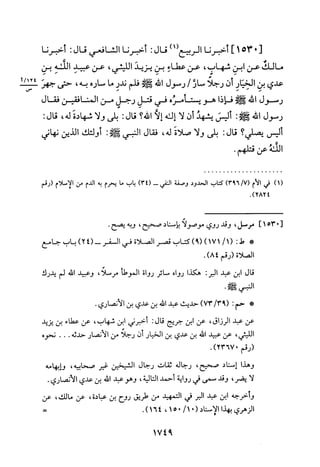 [١٥٣٠] أخبرنا الربيع(١) قال: أخبرنا الشافعي قال: أخبرنا
مالك عن ابن شهاب، عن عطاء بن يزيد الليثي، عن عبيد الله بن
عدي بن الخيار أن رجلاً سارَّ رسول الله ﷺ فلم ندر ما ساره به، حتى جهر
١٢٤/أ
س
رسول الله ﷺ فإذا هو يستأمره في قتل رجل من المنافقين فقال
رسول الله ﷺ: أليس يشهد أن لا إله إلا الله؟ قال: بلى ولا شهادة له، قال:
أليس يصلي؟ قال: بلى ولا صلاة له، فقال النبي ﷺ: أولئك الذين نهاني
الله عن قتلهم.
(١) في الأم (٣٩٦/٧) كتاب الحدود وصفة النفي ــ (٣٤) باب ما يحرم به الدم من الإسلام (رقم
٢٨٢٤).
[١٥٣٠] مرسل، وقد روي موصولاً بإسناد صحيح، وبه يصح.
* ط: (١٧١/١) (٩) كتاب قصر الصلاة في السفر ــ (٢٤) باب جامع
الصلاة (رقم ٨٤).
قال ابن عبد البر: هكذا رواه سائر رواة الموطأ مرسلاً، وعبيد الله لم يدرك
النبي ﷺ.
* حم: (٧٣/٣٩) حديث عبد الله بن عدي بن الأنصاري.
عن عبد الرزاق، عن ابن جريج قال: أخبرني ابن شهاب، عن عطاء بن يزيد
الليثي، عن عبيد الله بن عدي بن الخيار أن رجلاً من الأنصار حدثه... نحوه
(رقم ٢٣٦٧٠).
وهذا إسناد صحيح، رجاله ثقات رجال الشيخين غير صحابيه، وإبهامه
لا يضر، وقد سمي في رواية أحمد التالية، وهو عبد الله بن عدي الأنصاري.
وأخرجه ابن عبد البر في التمهيد من طريق روح بن عبادة، عن مالك، عن
الزهري بهذا الإسناد (١٥٠/١٠، ١٦٤). =
١٧٤٩